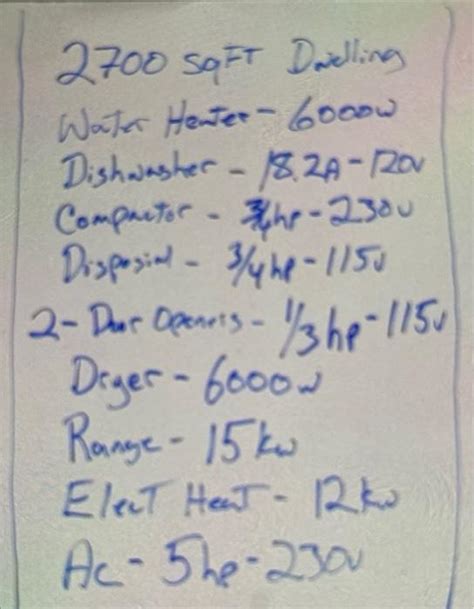 2700 sqFT Dwelling
Water Heater - 6000w
Dishwasher - 18.2A - 120v
Compactor - 3/4hp - 230v
Disposial - 3/4hp - 115v
2 - Door Openers - 1/3hp - 115v
Dryer - 6000w
Range - 15kw
ElecT Heat - 12kw
Ac - 5hp - 230v